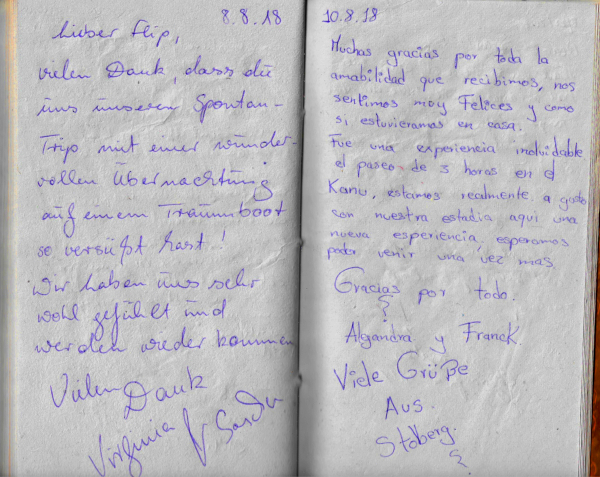 8.8.18
Lieber Flip,
vielen Dank, dass du
uns unseren Spontan-
Trip mit einer wunder-
vollen Übernachtung
auf einem Traumboot
so versüßt hast!
Wir haben uns sehr
wohl gefühlt und
werden wieder kommen
Vielen
Dank
Virginia &
10.8.18
Muchas gracias por toda la
amabilidad que recibimos, nos
sentimos muy Felices y como
si estuvieramos en casa.
Fue una experiencia inolvidable
el paseo de 3 horas en el
Kanu, estamos realmente a gusto
con nuestra estadia aqui una
nueva esperiencia, esperamos
poder venir una vez mas.
Gracias por todo.
y Franck.
Viele Grüße
Aus.
Stolberg.